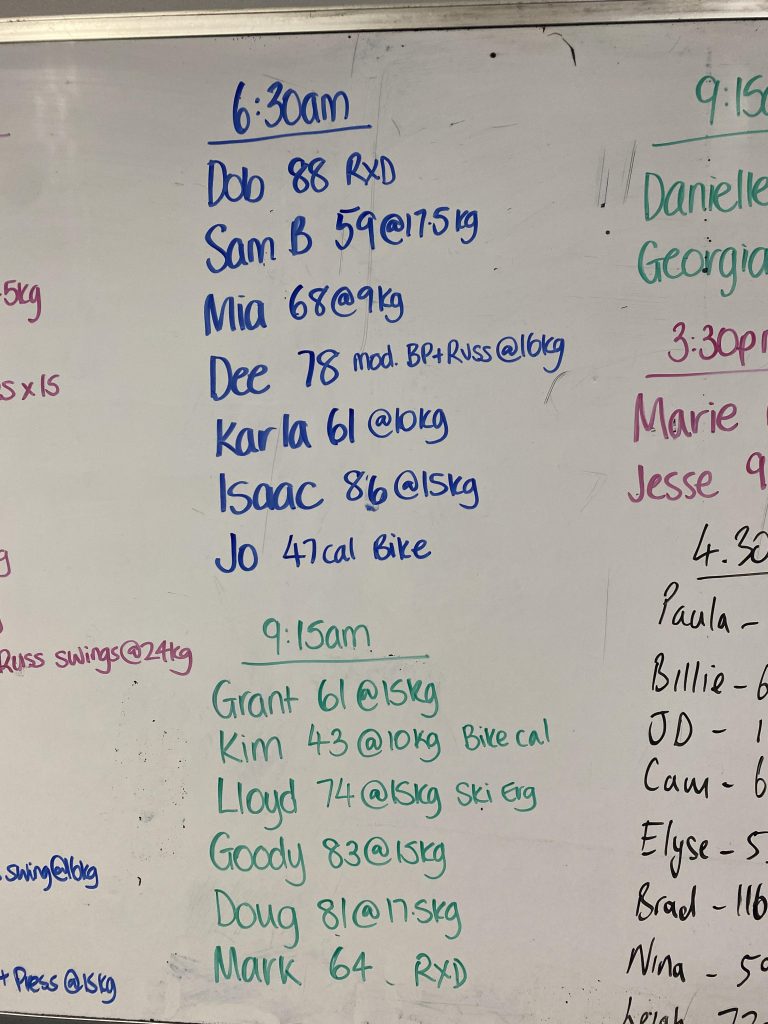 5kg
s x 15
g
Russ swings@24kg
swing@16kg
+ Press @15kg
6:30am
Dob 88 RXD
Sam B 59@17.5kg
Mia 68@9kg
Dee 78 mod. BP+Russ@16kg
Karla 61 @10kg
Isaac 86@15kg
Jo 47cal Bike
9:15am
Grant 61@15kg
Kim 43@10kg Bike cal
Lloyd 74@15kg Ski Erg
Goody 83@15kg
Doug 81@17.5kg
Mark 64 RXD
9:15
Danielle
Georgia
3:30p
Marie
Jesse 9
4.30
Paula -
Billie - 6
JD - 1
Cam - 6
Elyse - 5
Brad - 116
Nina - 59
Leigh 72